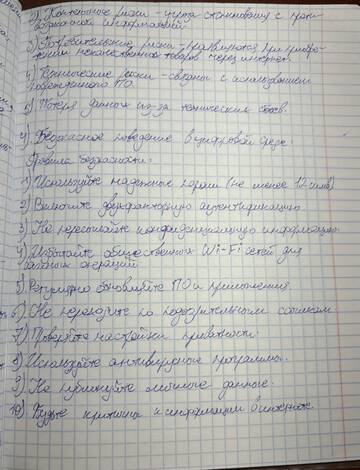 2) Контентные риски - угроза столкновения с проти-
воправной информацией
3) Потребительские риски - реализуются при приобре-
тении некачественных товаров через интернет.
4) Технические риски - связаны с использованием
вредоносного ПО.
5) Потеря данных из-за технических сбоев.
4) Безопасное поведение в цифровой среде.
Правила безопасности:
1) Используйте надежные пароли (не менее 12 симв)
2) Включите двухфакторную аутентификацию
3) Не пересылайте конфиденциальную информацию
4) Избегайте общественных Wi-Fi сетей для
важных операций
5) Регулярно обновляйте ПО и приложения
6) Не переходите по подозрительным ссылкам
7) Проверяйте настройки приватности.
8) Используйте антивирусные программы.
9) Не публикуйте личные данные.
10) Будьте критичны к информации в интернете